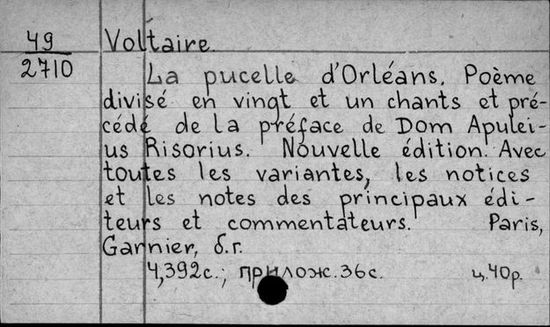 49 Voltaire.
2710 La pucelle d'Orléans. Poème
divisé en vingt et un chants et pré-
cédé de la préface de Dom Apulei-
us Risorius. Nouvelle édition. Avec
toutes les variantes, les notices
et les notes des principaux édi-
teurs et commentateurs. Paris,
Garnier, б.г.
4,392с.; прилож. 36с. ц.40р.